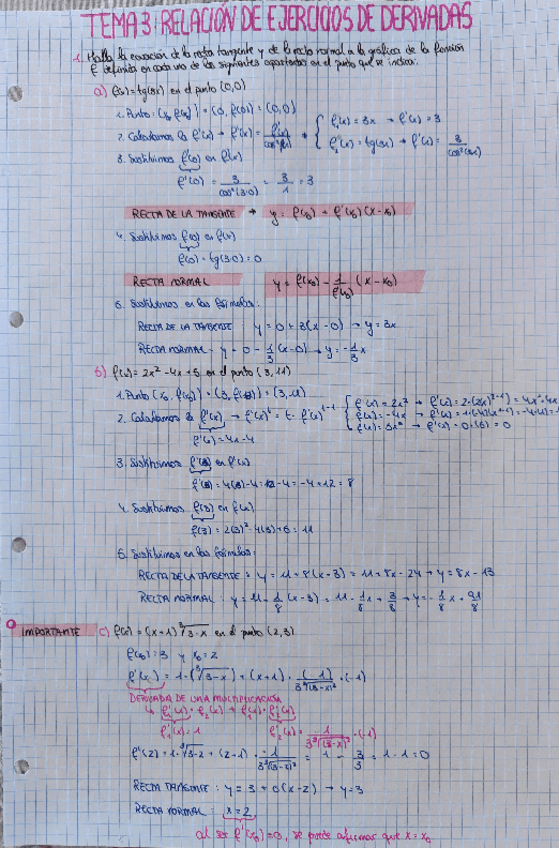 TEMA 3: RELACIÓN DE EJERCICIOS DE DERIVADAS
1. Halla la ecuación de la recta tangente y de la recta normal a la gráfica de la función
f definida en cada uno de los siguientes apartados en el punto que se indica:
a) f(x) = tg(3x) en el punto (0,0)
1. Punto: (x₀, f(x₀)) = (0, f(0)) = (0,0)
2. Calculamos la f'(x) → f'(x) =
f₁(x) = 3x → f'(x) = 3
f₂(x) = tg(3x) → f'(x) = 3/cos²(3x)
3. Sustituimos f'(0) en f'(x)
f'(0) = 3/cos²(3·0) = 3/1 = 3
RECTA DE LA TANGENTE → y = f(x₀) + f'(x₀)(x - x₀)
4. Sustituimos f(0) en f(x)
f(0) = tg(3·0) = 0
RECTA NORMAL y = f(x₀) - 1/f'(x₀) (x - x₀)
5. Sustituimos en las fórmulas:
RECTA DE LA TANGENTE y = 0 + 3(x - 0) → y = 3x
RECTA NORMAL = y = 0 - 1/3 (x - 0) → y = -1/3 x
b) f(x) = 2x² - 4x + 5 en el punto (3, 11)
1. Punto (x₀, f(x₀)) = (3, f(3)) = (3, 11)
2. Calculamos la f'(x) →
f'(x) = 4x - 4
3. Sustituimos f'(3) en f'(x)
f'(3) = 4(3) - 4 = 12 - 4 = 8
4. Sustituimos f(3) en f(x)
f(3) = 2(3)² - 4(3) + 5 = 11
5. Sustituimos en las fórmulas:
RECTA DE LA TANGENTE: y = 11 + 8(x - 3) = 11 + 8x - 24 → y = 8x - 13
RECTA NORMAL: y = 11 - 1/8 (x - 3) = 11 - 1/8 x + 3/8 → y = -1/8 x + 91/8
IMPORTANTE c) f(x) = (x + 1) ∛3 - x en el punto (2, 3)
f(x₀) = 3 y x₀ = 2
f'(x) = 1 · (∛3 - x) + (x + 1) · (1)/3∛(3 - x)² · (-1)
DERIVADA DE UNA MULTIPLICACIÓN
↳ f₁'(x) · f₂(x) + f₁(x) · f₂'(x)
f₁'(x) = 1 f₂'(x) = 1/3∛(3 - x)² · (-1)
f'(2) = 1 · ∛3 - 2 + (2 + 1) · -1/3∛(3 - 2)² = 1 - 3/3 = 1 - 1 = 0
RECTA TANGENTE: y = 3 + 0(x - 2) → y = 3
RECTA NORMAL: x = 2
al ser f'(x₀) = 0, se puede afirmar que x = x₀